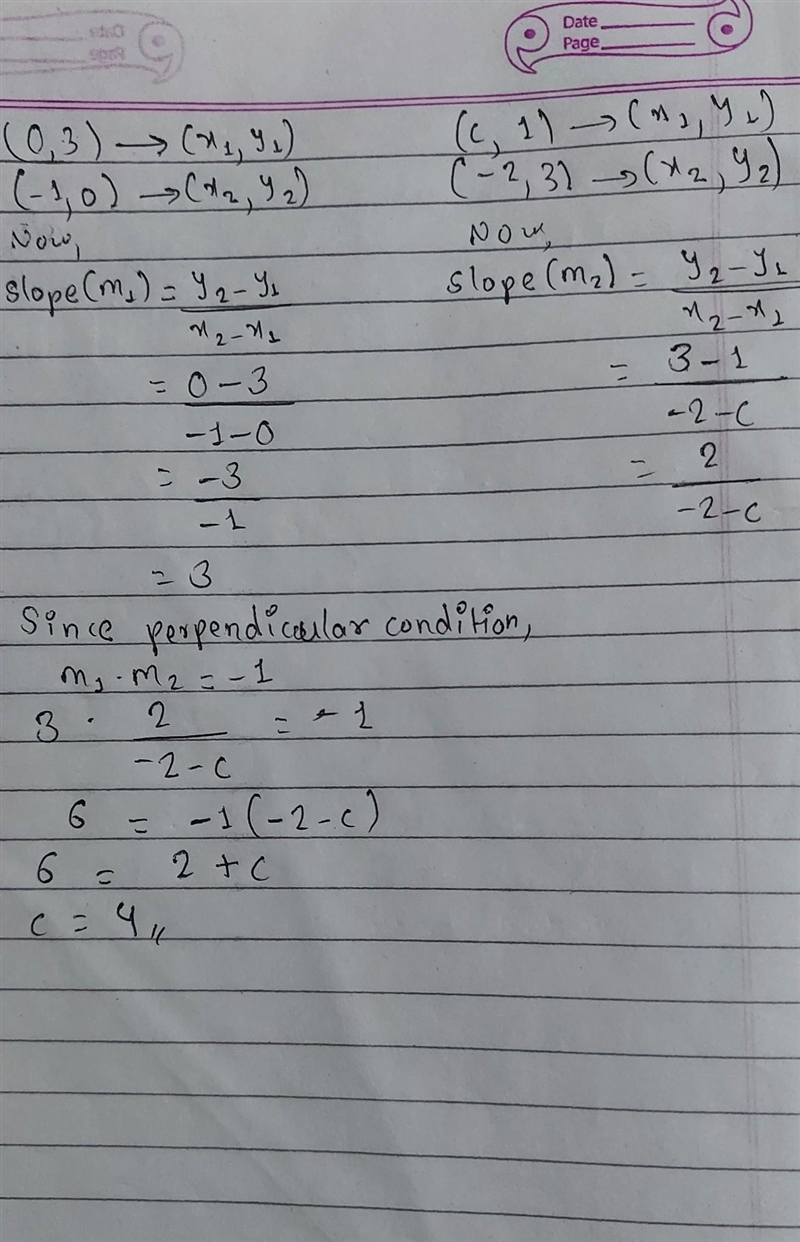 Date
Page
(0,3) → (x₁, y₁)
(-1,0) → (x₂, y₂)
Now,
Slope(m₁) = y₂-y₁
x₂-x₁
= 0-3
-1-0
= -3
-1
= 3
(c, 1) → (x₁, y₁)
(-2,3) → (x₂, y₂)
Now,
Slope(m₂) = y₂-y₁
x₂-x₁
= 3-1
-2-c
= 2
-2-c
Since perpendicular condition,
m₁·m₂ = -1
3 · 2 = -1
-2-c
6 = -1(-2-c)
6 = 2+c
c = 4